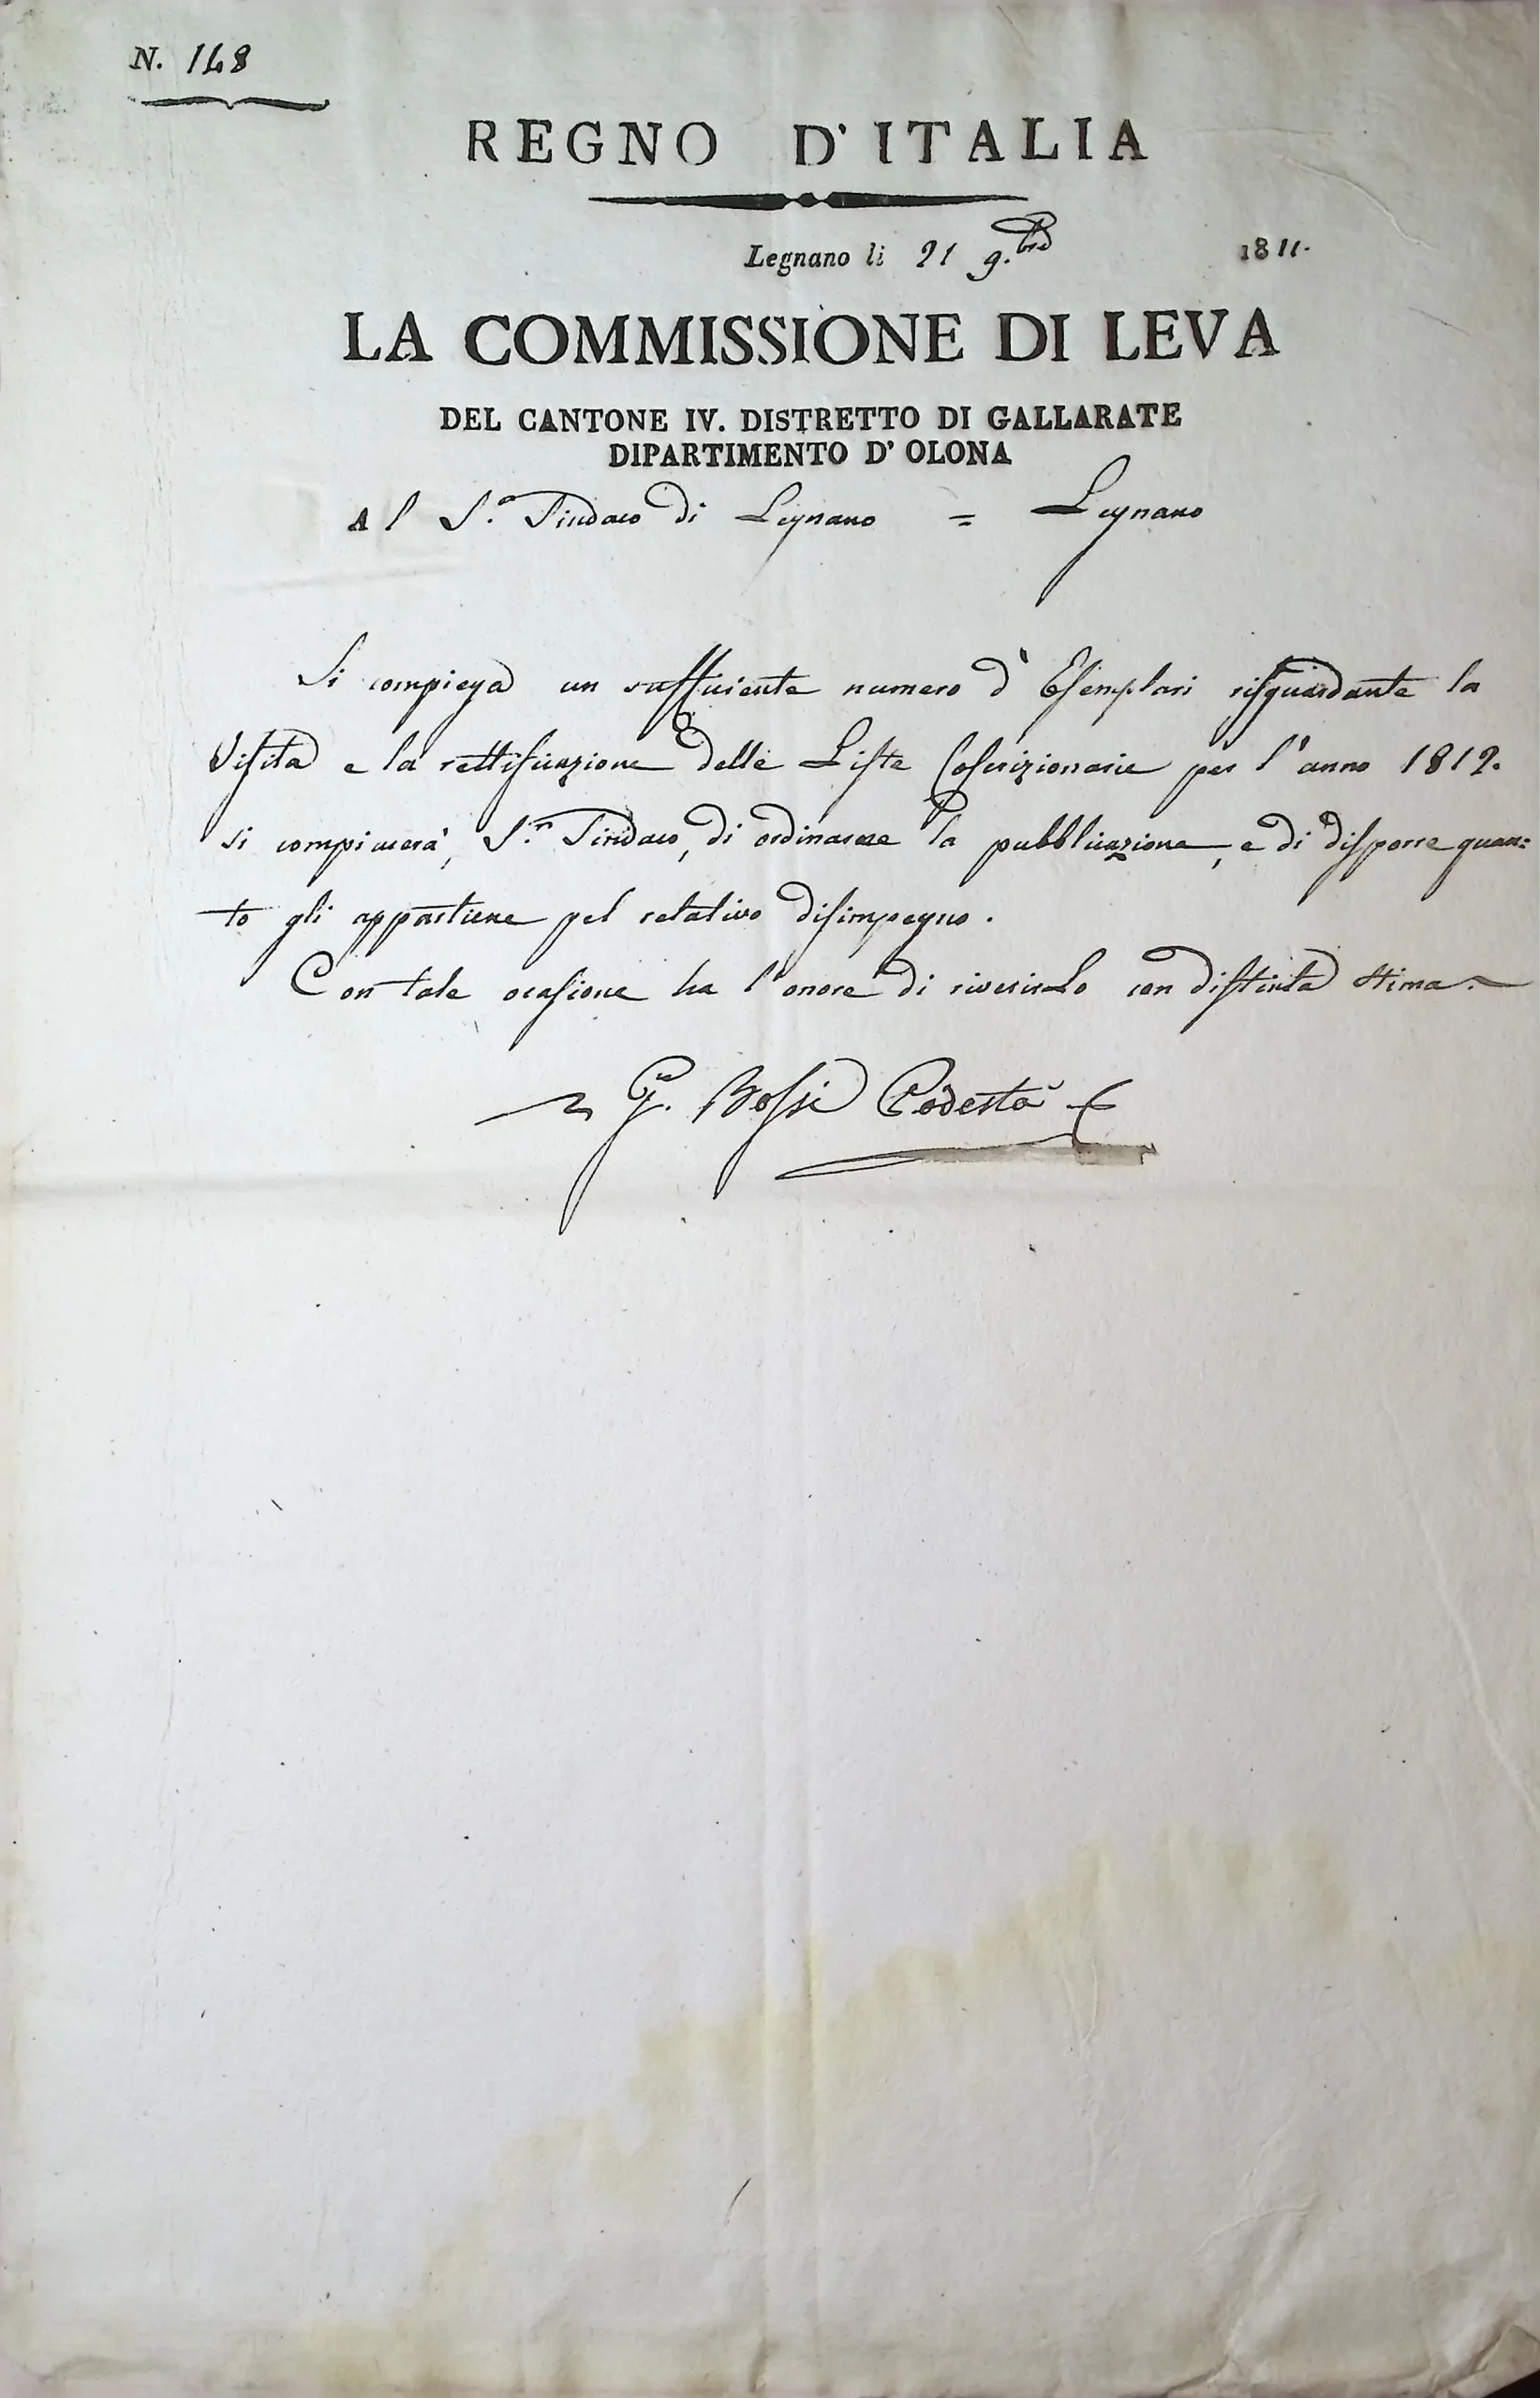 N. 148
REGNO D'ITALIA
Legnano li 21 9.bre 1811.
LA COMMISSIONE DI LEVA
DEL CANTONE IV. DISTRETTO DI GALLARATE
DIPARTIMENTO D' OLONA
Al S.r Sindaco di Legnano = Legnano
Si compiega un sufficiente numero d' Esemplari risguardante la
Visita e la rettificazione delle Liste Coscrizionarie per l'anno 1812.
si compiacerà, S.r Sindaco, di ordinarne la pubblicazione, e di disporre quan=
to gli appartiene pel relativo disimpegno.
Con tale ocasione ha l'onore di riverirLo con distinta stima.
G. Bossi Podestà